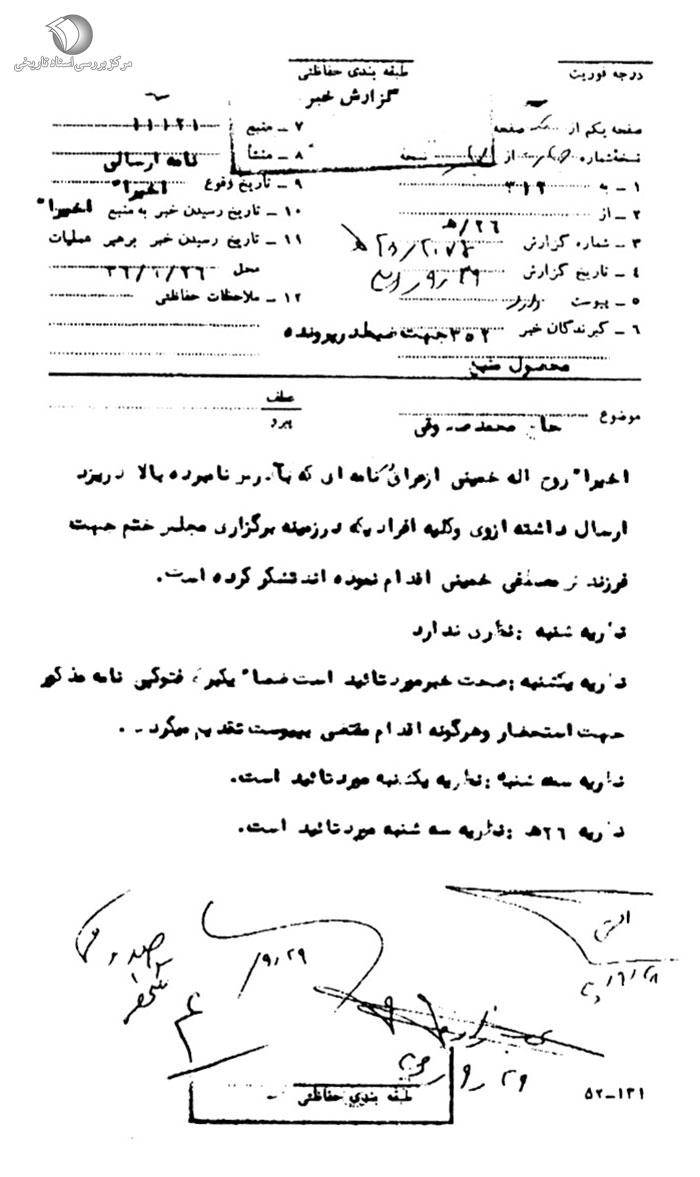 مرکز بررسی اسناد تاریخی
درجه فوریت
طبقه بندی حفاظتی
گزارش خبر
صفحه یکم از یک صفحه
نسخهٔ شماره از نسخه
۱ ـ به ۳۱۲
۲ ـ از ۲۶/ه
۳ ـ شماره گزارش
۴ ـ تاریخ گزارش
۵ ـ پیوست دارد
۶ ـ گیرندگان خبر ۳۵۲ جهت ضبط در پرونده
محصول منبع
۷ ـ منبع ۱۱۱۲۱
۸ ـ منشأ نامه ارسالی
۹ ـ تاریخ وقوع اخیرا"
۱۰ ـ تاریخ رسیدن خبر به منبع اخیرا"
۱۱ ـ تاریخ رسیدن خبر برهبر عملیات
محل
۱۲ ـ ملاحظات حفاظتی
موضوع حاج محمد صدوقی
عطف
پیرو
اخیرا" روح اله خمینی از عراق نامه ای که بآدرس نامبرده بالا در یزد
ارسال داشته ازوی وکلیه افرادیکه درزمینه برگزاری مجلس ختم جهت
فرزندش مصطفی خمینی اقدام نموده اند تشکر کرده است.
نظریه شنبه : نظری ندارد
نظریه یکشنبه : صحت خبر مورد تائید است ضمنا" یکبرگ فتوکپی نامه مذکور
جهت استحضار وهرگونه اقدام مقتضی بپیوست تقدیم میگردد.
نظریه سه شنبه : نظریه یکشنبه مورد تائید است.
نظریه ۲۶ه : نظریه سه شنبه مورد تائید است.
۹/۲۹
طبقه بندی حفاظتی
۵۲ـ۱۳۱